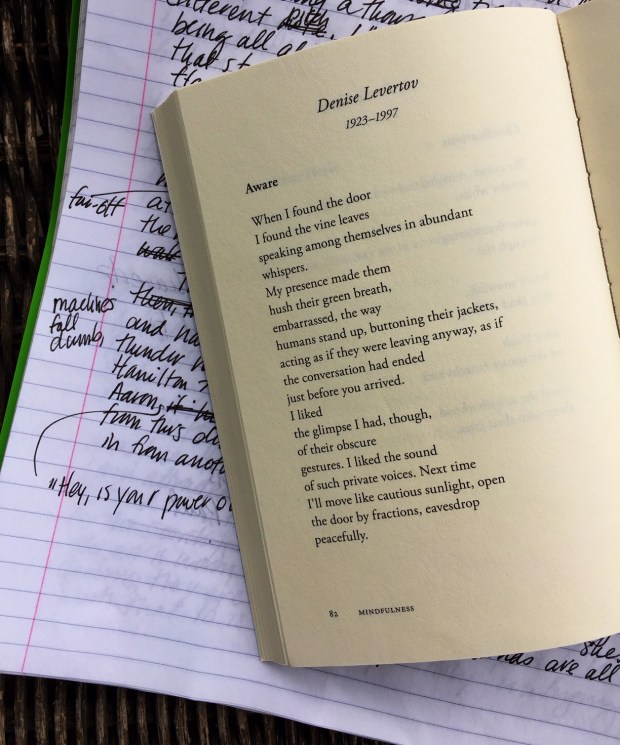 different
being all
that
far-off
the
machines
fall
dumb,
and
thunder
Hamilton
Aaron,
from this
in from
"Hey, is your power
Denise Levertov
1923–1997
Aware
When I found the door
I found the vine leaves
speaking among themselves in abundant
whispers.
My presence made them
hush their green breath,
embarrassed, the way
humans stand up, buttoning their jackets,
acting as if they were leaving anyway, as if
the conversation had ended
just before you arrived.
I liked
the glimpse I had, though,
of their obscure
gestures. I liked the sound
of such private voices. Next time
I'll move like cautious sunlight, open
the door by fractions, eavesdrop
peacefully.
82 MINDFULNESS
are all